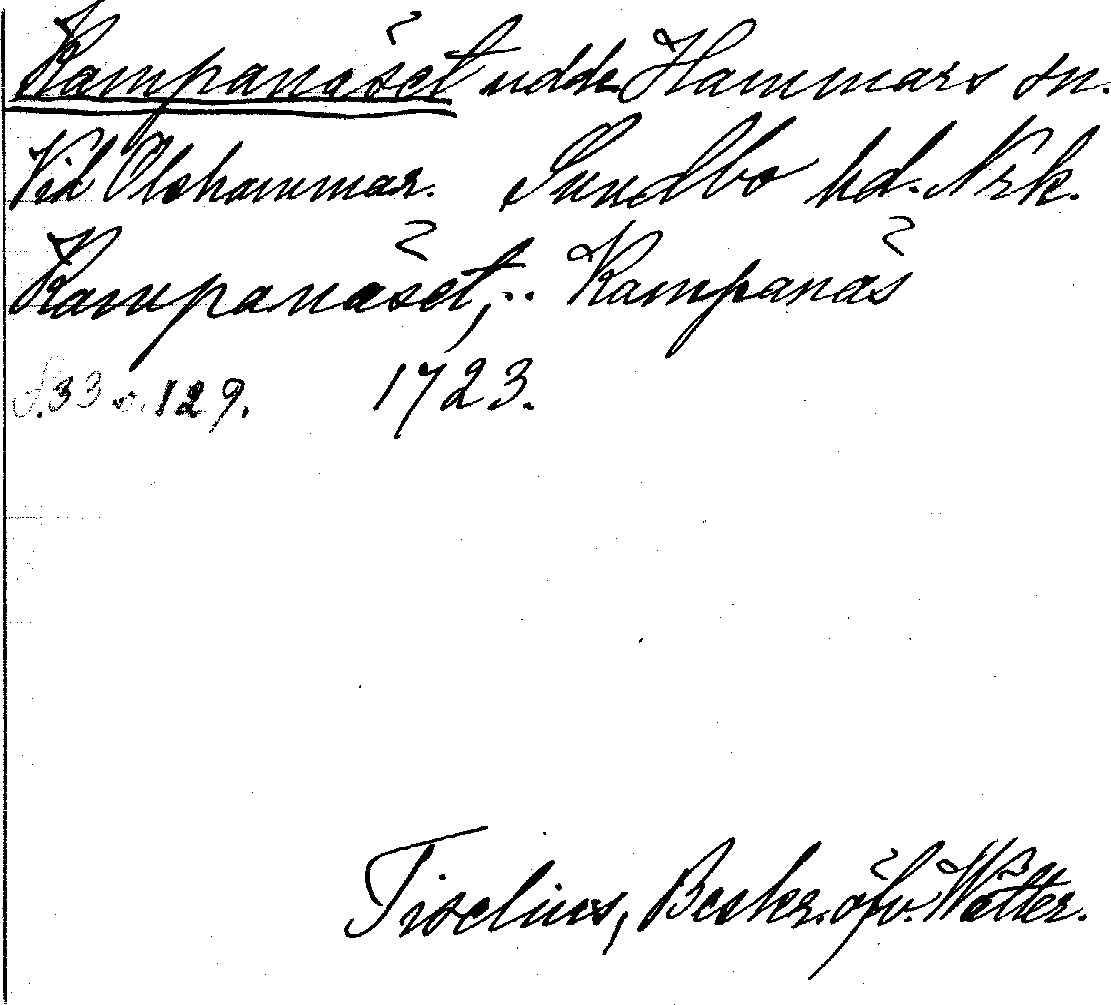 Kampanäset udde Hammars sn.
Vid Olshammar. Sundbo hd. Nrk.
Kampanäset, .. Kampanäs
S. 33 o. 129. 1723.
Tiselius, Beskr. öfv. Wätter.